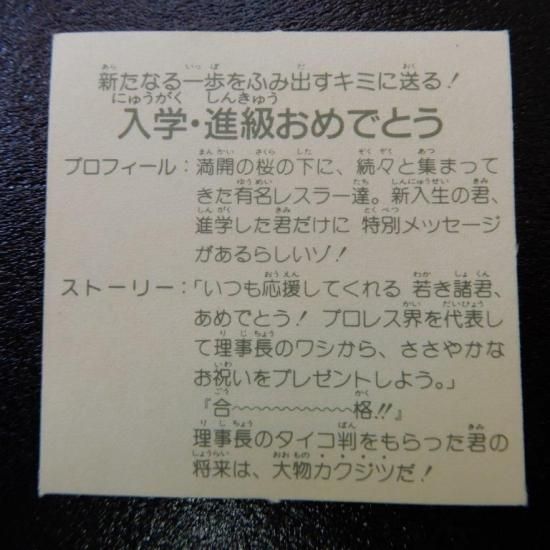 新たなる一歩をふみ出すキミに送る！
入学・進級おめでとう
プロフィール：満開の桜の下に、続々と集まって
きた有名レスラー達。新入生の君、
進学した君だけに 特別メッセージ
があるらしいゾ！
ストーリー：「いつも応援してくれる 若き諸君、
あめでとう！ プロレス界を代表し
て理事長のワシから、ささやかな
お祝いをプレゼントしよう。」
『合〜〜〜〜〜〜〜格!!』
理事長のタイコ判をもらった君の
将来は、大物カクジツだ！